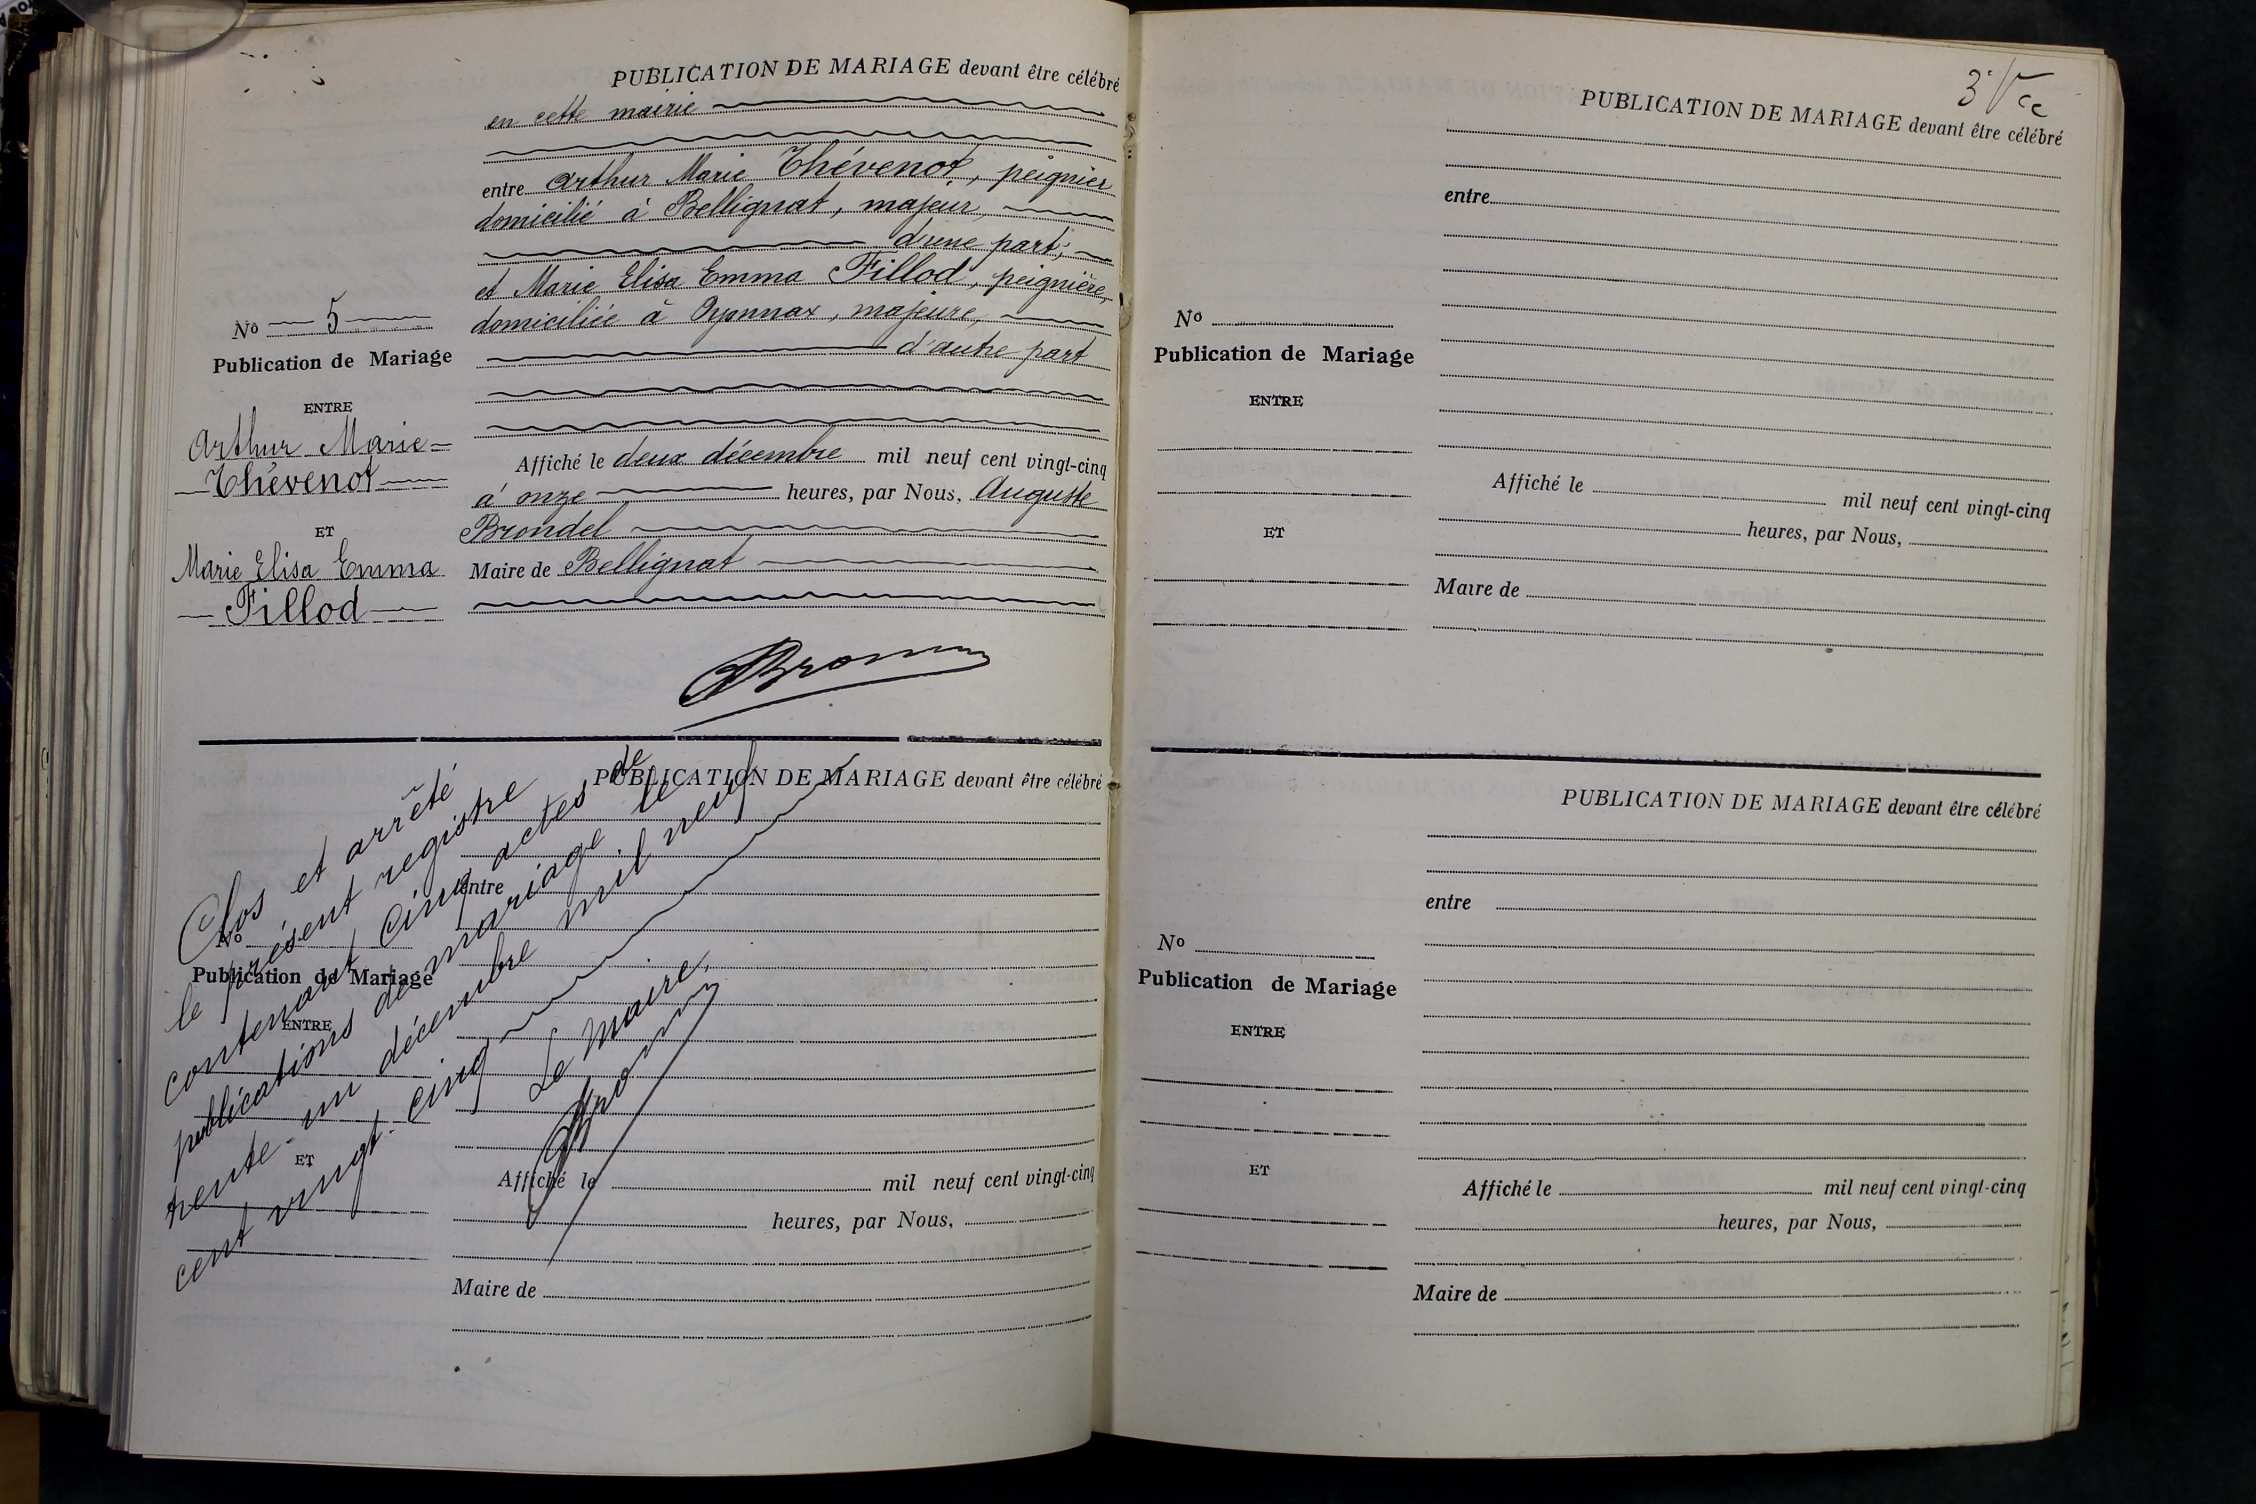 PUBLICATION DE MARIAGE devant être célébré
en cette mairie
entre Arthur Marie Thévenot, peignier
domicilié à Bellignat, majeur,
d'une part,
et Marie Elisa Emma Fillod, peignière,
domiciliée à Oyonnax, majeure,
d'autre part
No 5
Publication de Mariage
ENTRE
Arthur Marie
Thévenot
ET
Marie Elisa Emma
Fillod
Affiché le deux décembre mil neuf cent vingt-cinq
à onze heures, par Nous, Auguste
Brondel
Maire de Bellignat
PUBLICATION DE MARIAGE devant être célébré
entre
No
Publication de Mariage
ENTRE
ET
Affiché le mil neuf cent vingt-cinq
heures, par Nous,
Maire de
Clos et arrêté
le présent registre
contenant cinq actes de
publications de mariage le
trente-un décembre mil neuf
cent vingt-cinq
Le Maire,
PUBLICATION DE MARIAGE devant être célébré
entre
No
Publication de Mariage
ENTRE
ET
Affiché le mil neuf cent vingt-cinq
heures, par Nous,
Maire de
PUBLICATION DE MARIAGE devant être célébré
entre
No
Publication de Mariage
ENTRE
ET
Affiché le mil neuf cent vingt-cinq
heures, par Nous,
Maire de